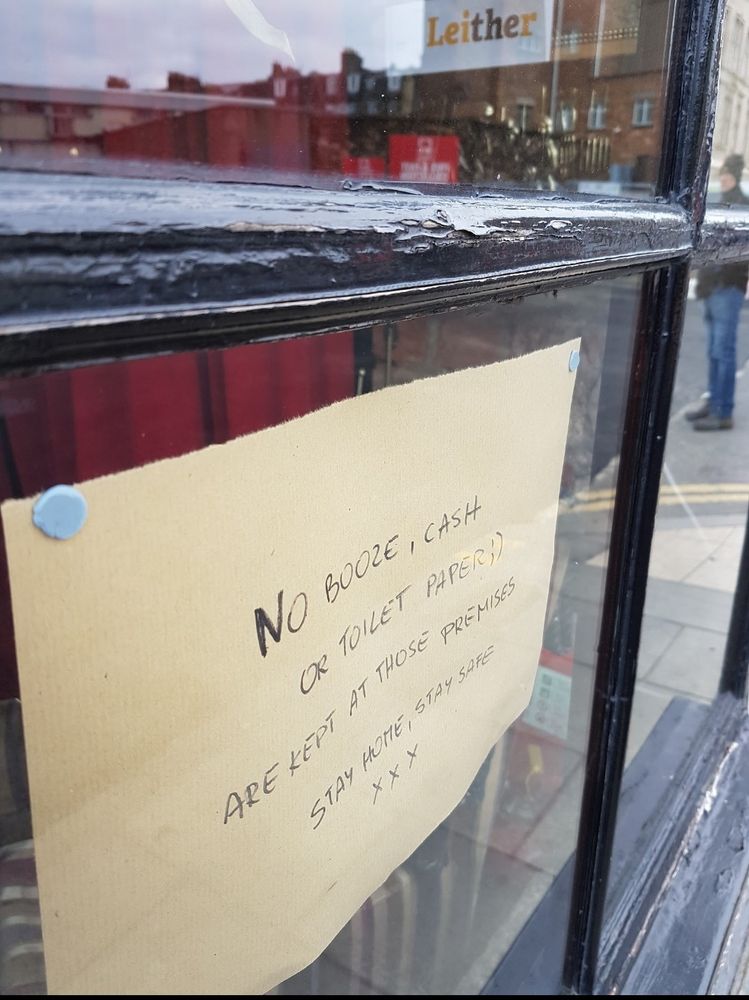 Leither
NO BOOZE, CASH
OR TOILET PAPER ;)
ARE KEPT AT THOSE PREMISES
STAY HOME, STAY SAFE
x x x